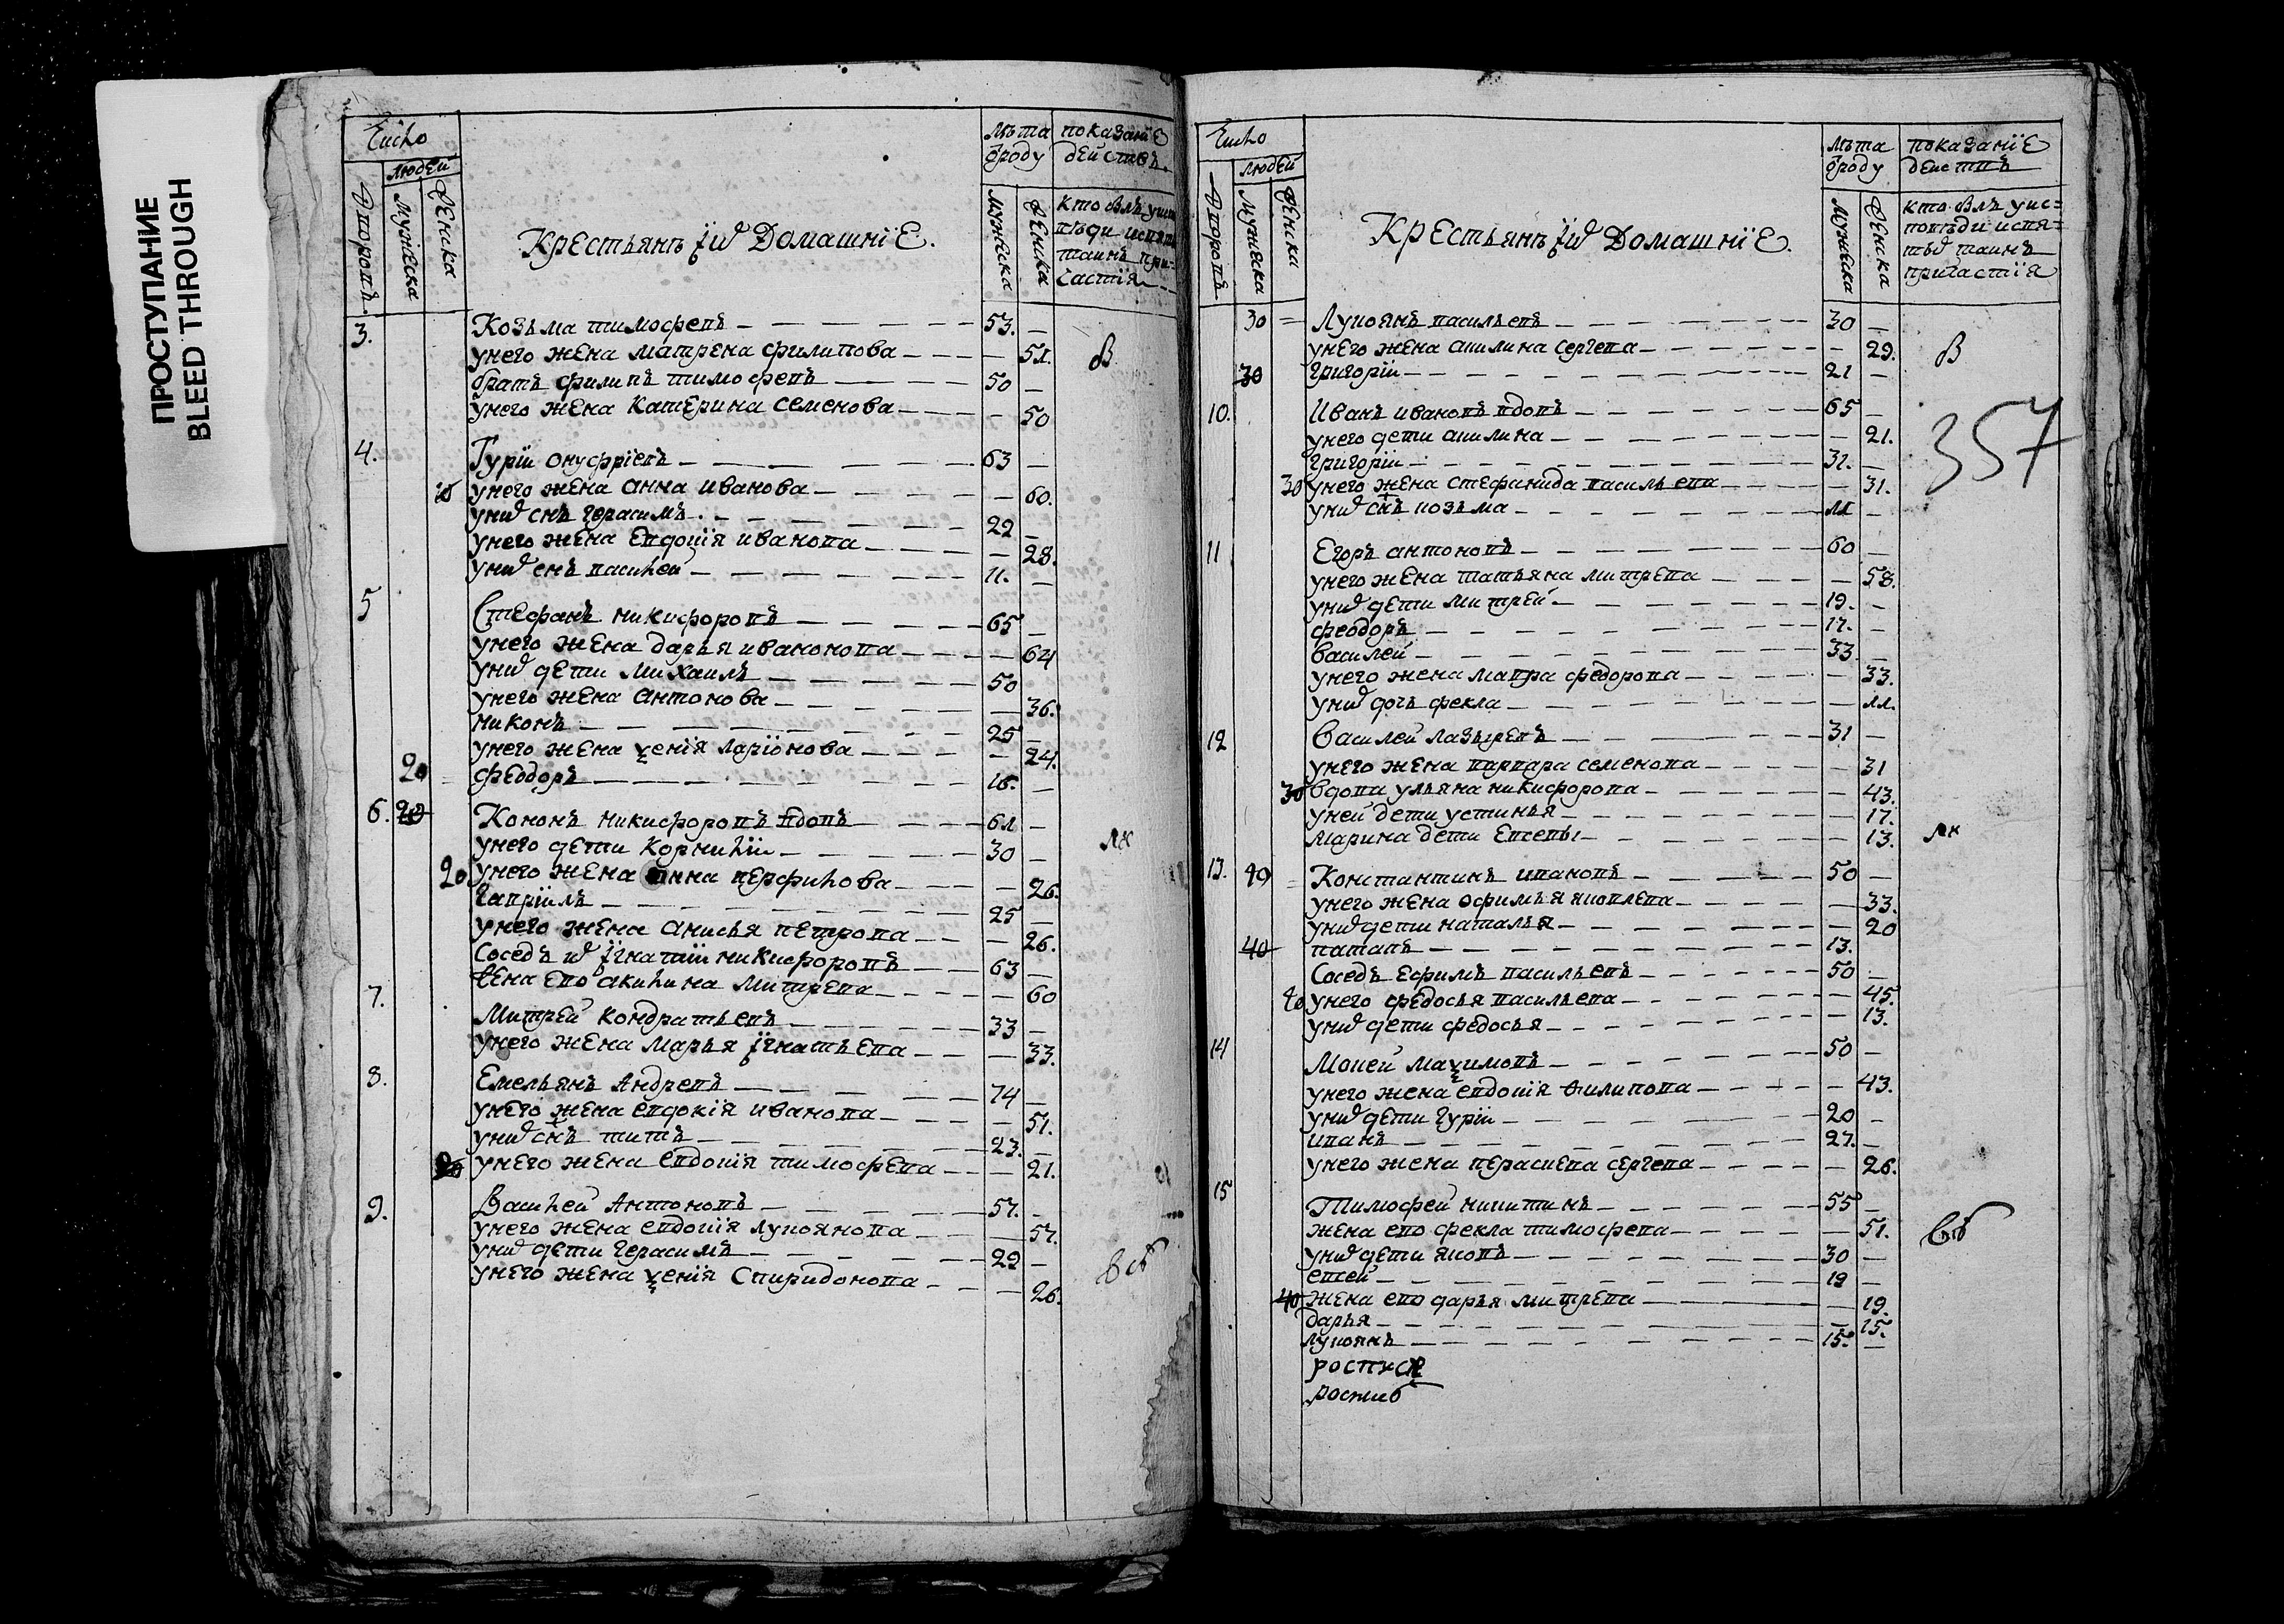 ПРОСТУПАНИЕ
BLEED THROUGH
Число
людей
Дворовъ
мужеска
женска
Крестьянъ їѡ Домашніе.
лѣта
ѿроду
мужеска
женска
показаніе
действъ.
кто былъ уис
пвѣди испя
таинъ при-
частія
3. Козьма тимофевъ 53.
унего жена матрена филипова 51.
братъ филипъ тимофевъ 50
унего жена катерина семенова 50
4. Гурїи онуфріевъ 63
10 унего жена анна иванова 60.
униѡ снъ герасимъ 22
унего жена Евдокія иванова 28.
униѡ снъ василей 11.
5 Стефанъ никифоровъ 65
унего жена дарья ивановова 64
униѡ дети михаилъ 50
унего жена антонова 36.
никонъ 25
унего жена ѯенія ларіонова 24.
20 феодоръ 16.
6. 20 Кононъ никифоровъ вдовъ 61
унего дети корнилїи 30
20 унего жена анна перфилова 26.
гавріилъ 25
унего жена анисья петрова 26.
Соседъ иѡ їгнатїи никифоровъ 63
жена ево акилина митрева 60
7. Митрей кондратьевъ 33
унего жена марья їгнатьева 33.
8. Емельянъ Андревъ 74
унего жена евдокія иванова 51.
униѡ снъ титъ 23.
20 унего жена евдокія тимофева 21.
9. Василей Антоновъ 57.
унего жена евдокія лукоянова 57.
униѡ дети герасимъ 29
унего жена ѯенія Спиридонова 26.
В
лк
Число
людей
Дворовъ
мужеска
женска
Крестьянъ їѡ Домашніе.
лѣта
ѿроду
мужеска
женска
показаніе
действъ
кто былъ уис=
поведи испя=
тыѡ таинъ
причастія
30 Лукоянъ васильевъ 30
унего жена акилина сергева 29.
30 григорїи 21
10. Иванъ ивановъ вдовъ 65
унего дети акилина 21.
григорїи 31.
30 унего жена стефанида васильева 31.
униѡ снъ козьма
11 Егоръ антоновъ 60
унего жена татьяна митрева 58.
униѡ дети митрей 19.
феодоръ 17.
василей 33
унего жена мавра федорова 33.
униѡ дочъ фекла
12 Василей лазыревъ 31
унего жена варвара семенова 31
30 вдова ульяна никифорова 43.
уней дети устинья 17.
марина дети Евсевы 13.
13. 40 Константинъ ивановъ 50
унего жена офимья яковлева 33.
униѡ дети наталья 20
40 патапъ 13.
Соседъ Ефимъ васильевъ 50
40 унего федосья васильева 45.
униѡ дети федосья 13.
14 Мокей маѯимовъ 50
унего жена евдокія филипова 43.
униѡ дети гурїи 20
иванъ 27.
унего жена парасцева сергева 26.
15 Тимофей никитинъ 55
жена ево фекла тимофева 51.
униѡ дети яковъ 30
евсей 19
40 жена ево дарья митрева 19.
дарья 15.
лукоянъ 15.
роспися
В
357
лк